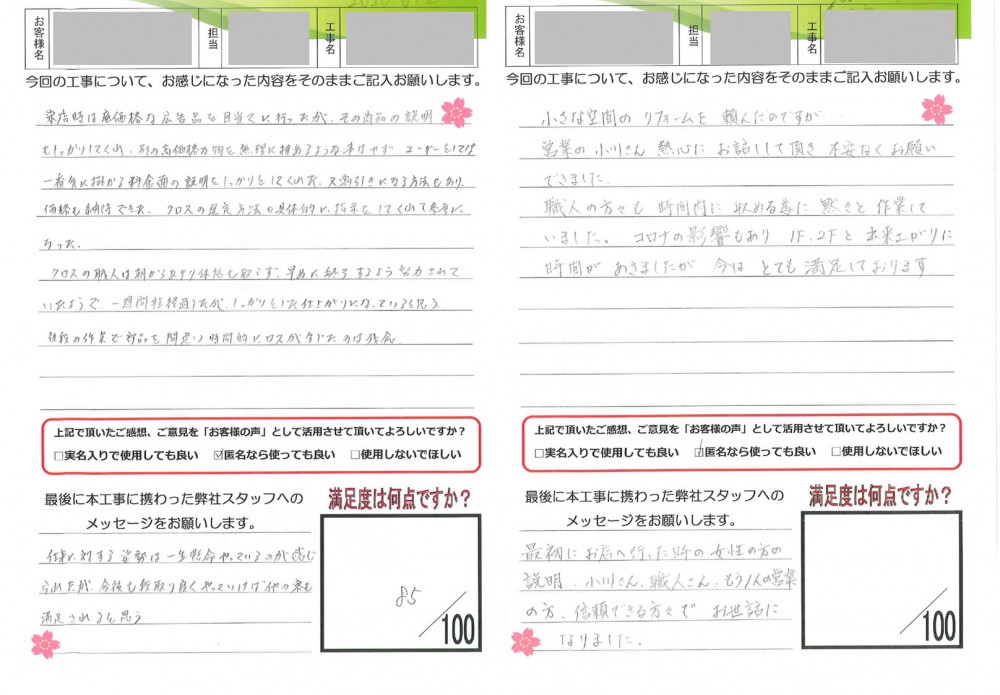 お客様名
担当
工事名
今回の工事について、お感じになった内容をそのままご記入お願いします。
来店時は低価格な広告品を目当てに行ったが、その商品の説明
もしっかりしてくれ、別の高価格の物を無理に推めるような事はせず ユーザーとしては
一番気に掛かる料金面の説明もしっかりとしてくれた。又割引きになる方法もあり、
価格も納得できた。クロスの選定方法も具体的に指示をしてくれて参考に
なった。
クロスの職人は朝からあまり休憩も取らず、早めに終了するよう努力されて
いたようで、一週間程経過したが、しっかりとした仕上がりになっていると思う。
後段の作業で部品を間違い時間的にロスが生じたのは残念。
上記で頂いたご感想、ご意見を「お客様の声」として活用させて頂いてよろしいですか？
□実名入りで使用しても良い ☑匿名なら使っても良い □使用しないでほしい
最後に本工事に携わった弊社スタッフへの
メッセージをお願いします。
仕事に対する姿勢は一生懸命やっているのが感じ
られたが、今後も段取り良くやっていけば他の客も
満足されると思う
満足度は何点ですか？
85
／100
お客様名
担当
工事名
今回の工事について、お感じになった内容をそのままご記入お願いします。
小さな空間の リフォームを 頼んだのですが
営業の 小川さん 熱心に お話しして頂き 不安なくお願い
できました。
職人の方々も 時間内に 収める為に 黙々と 作業して
いました。 コロナの影響もあり 1F.2Fと 出来上がりに
時間が あきましたが 今は とても 満足しております
上記で頂いたご感想、ご意見を「お客様の声」として活用させて頂いてよろしいですか？
□実名入りで使用しても良い ☑匿名なら使っても良い □使用しないでほしい
最後に本工事に携わった弊社スタッフへの
メッセージをお願いします。
最初に お店へ行った時の 女性の方の
説明、小川さん、職人さん、もう1人の営業
の方、信頼できる方々で お世話に
なりました。
満足度は何点ですか？
／100